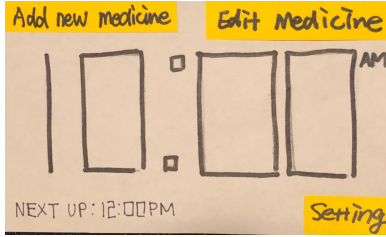 Add new medicine
Edit Medicine
10:00 AM
NEXT UP: 12:00PM
Setting